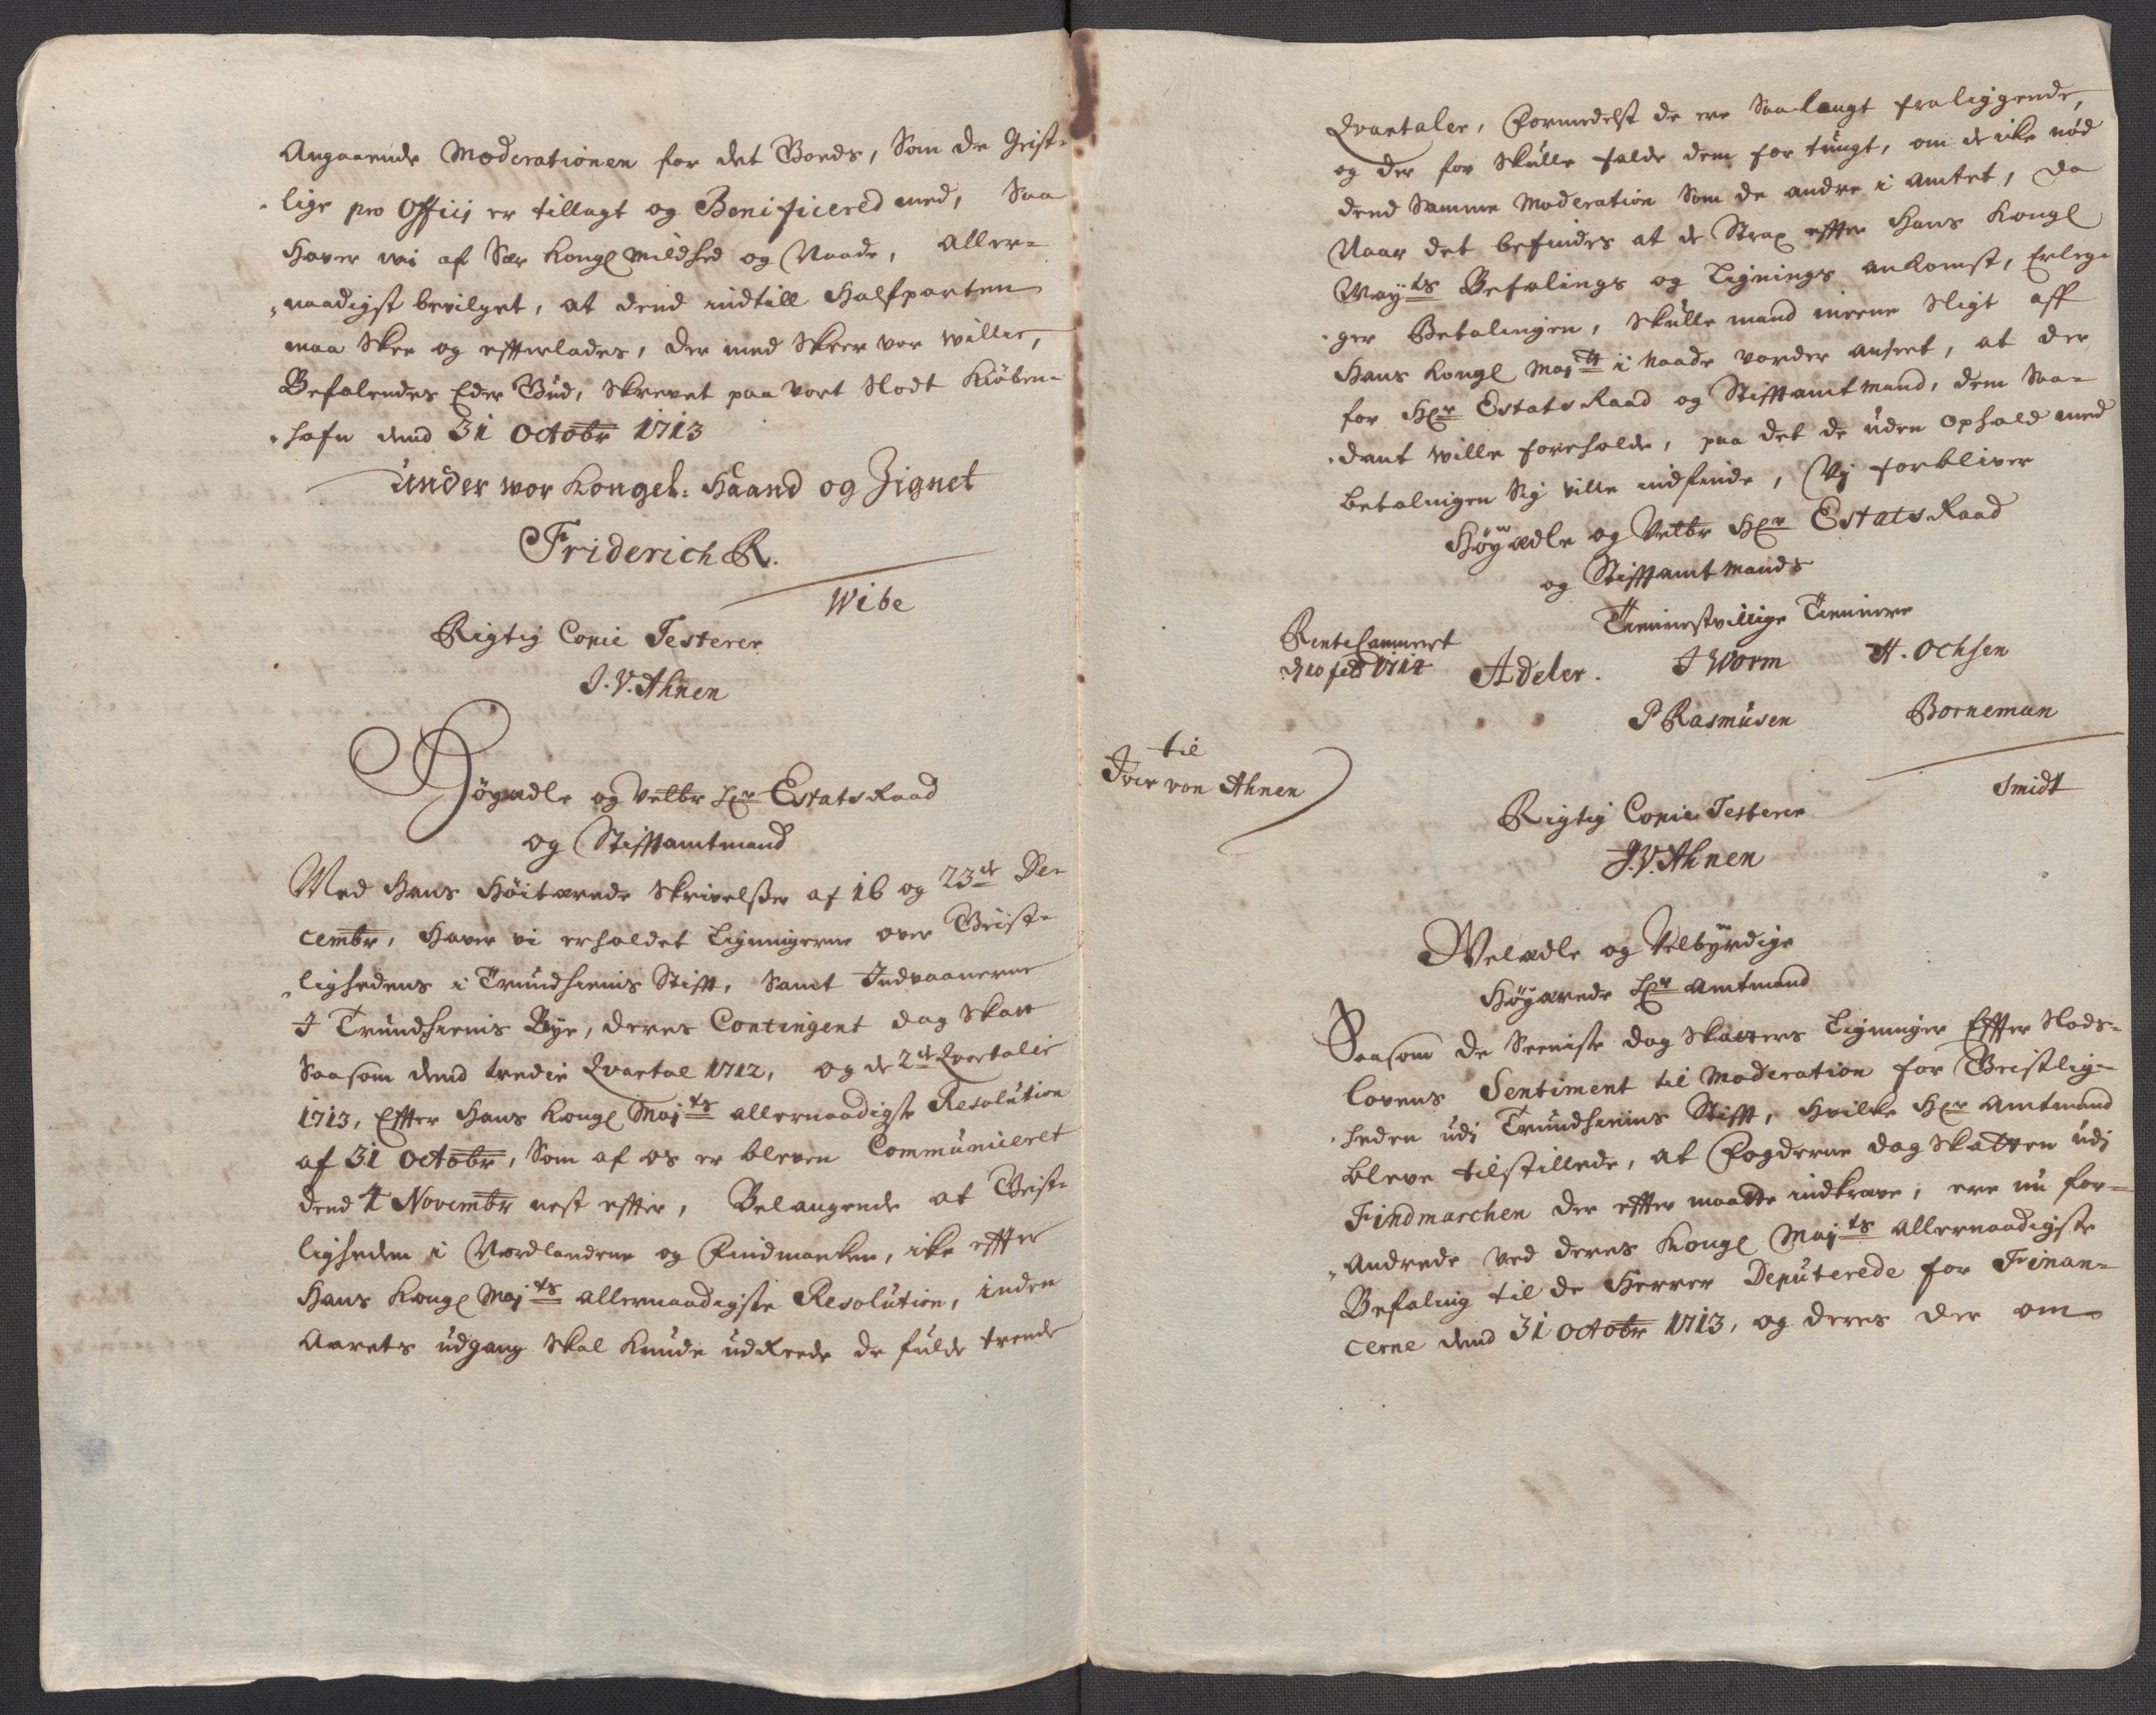 Angaaende Moderationen for det Bords, Som de Geist-
lige pro Officij er tillagt og Benificered med, Saa
Hafver wi af Sær Kongl Mildhed og Naade, aller-
naadigst bevilget, at dend indtill Halfparten
maa Skee og efterlades, der med Skeer vor willie,
Befalendes Eder Gud, Skrevet paa vort Slodt Kiøben-
hafn dend 31 Octobr 1713
under wor Kongel: Haand og Zignet
Friderich R.
Wibe
Rigtig Copie Testerer
J. V. Ahnen
Høyædle og Velbr Hr Estats Raad
og Stifftamtmand
Med Hans Høitærede Skrivelßer af 16 og 23de De-
cembr, Haver vi erholdet Ligningerne over Geist-
lighedens i Trundhiems Stifft, Samt Indvaanerne
I Trundhiems Bye, deres Contingent dag Skatt
Saasom dend tredie Qvartal 1712, og de 2de Qvartaler
1713, Effter Hans Kongl Majts allernaadigste Resolution
af 31 Octobr, Som af os er bleven Communiceret
dend 4 Novembr nest effter, Belangende at Geist-
ligheden i Nordlandene og Findmarken, ike effter
Hans Kongl Majts allernaadigste Resolution, inden
Aarets udgang Skal kunde udRede de fulde trende
Qvartaler, Formedelst de ere Saa langt fraliggende,
og der for Skulle falde dem for tungt, om de icke nød
dend Samme Moderation Som de andre i Amtet, da
Naar det befindes at de Strax effter Hans Kongl
Mayts Befalings og Lignings ankomst, Erleg-
ger Betalingen, Skulle mand meene Sligt aff
Hans Kongl Majtt i Naade vorder anseet, at der
for Hr Estats Raad og Stifftamtmand, dem Saa-
dant wille foreholde, paa det de uden Ophold med
betalingen Sig ville indfinde, Vj forbliver
Høyædle og Velbr Hr Estats Raad
og Stifftamtmands
Tienestvillige Tiennere
RenteCammeret
d 10 feb 1714
Adeler. J Worm H. Ochsen
P Rasmusen Borneman
Smidt
til
Iver von Ahnen
Rigtig Copie Testerer
J. V. Ahnen
Welædle og Velbyrdige
Høyærede Hr Amtmand
Saasom de Seeniste dag Skatters Ligninger Effter Slods-
lovens Sentiment til Moderation for Geistlig-
heden udj Trundhiems Stifft, Hvilke Hr Amtmand
bleve tilstillede, at Fogderne dag Skatten udj
Findmarchen der effter maatte indkræve, ere nu for-
andrede ved deres Kongl Majts allernaadigste
Befaling til de Herrer Deputerede for Finan-
cerne dend 31 Octobr 1713, og deres der om